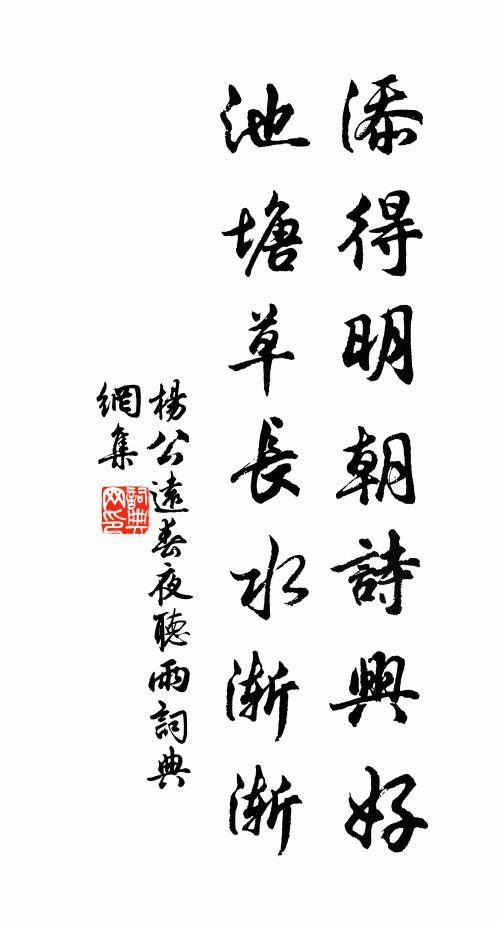 添得明朝詩興好
池塘草長水漸漸
楊公遠春夜聽雨詞典
網集
詞典
网印